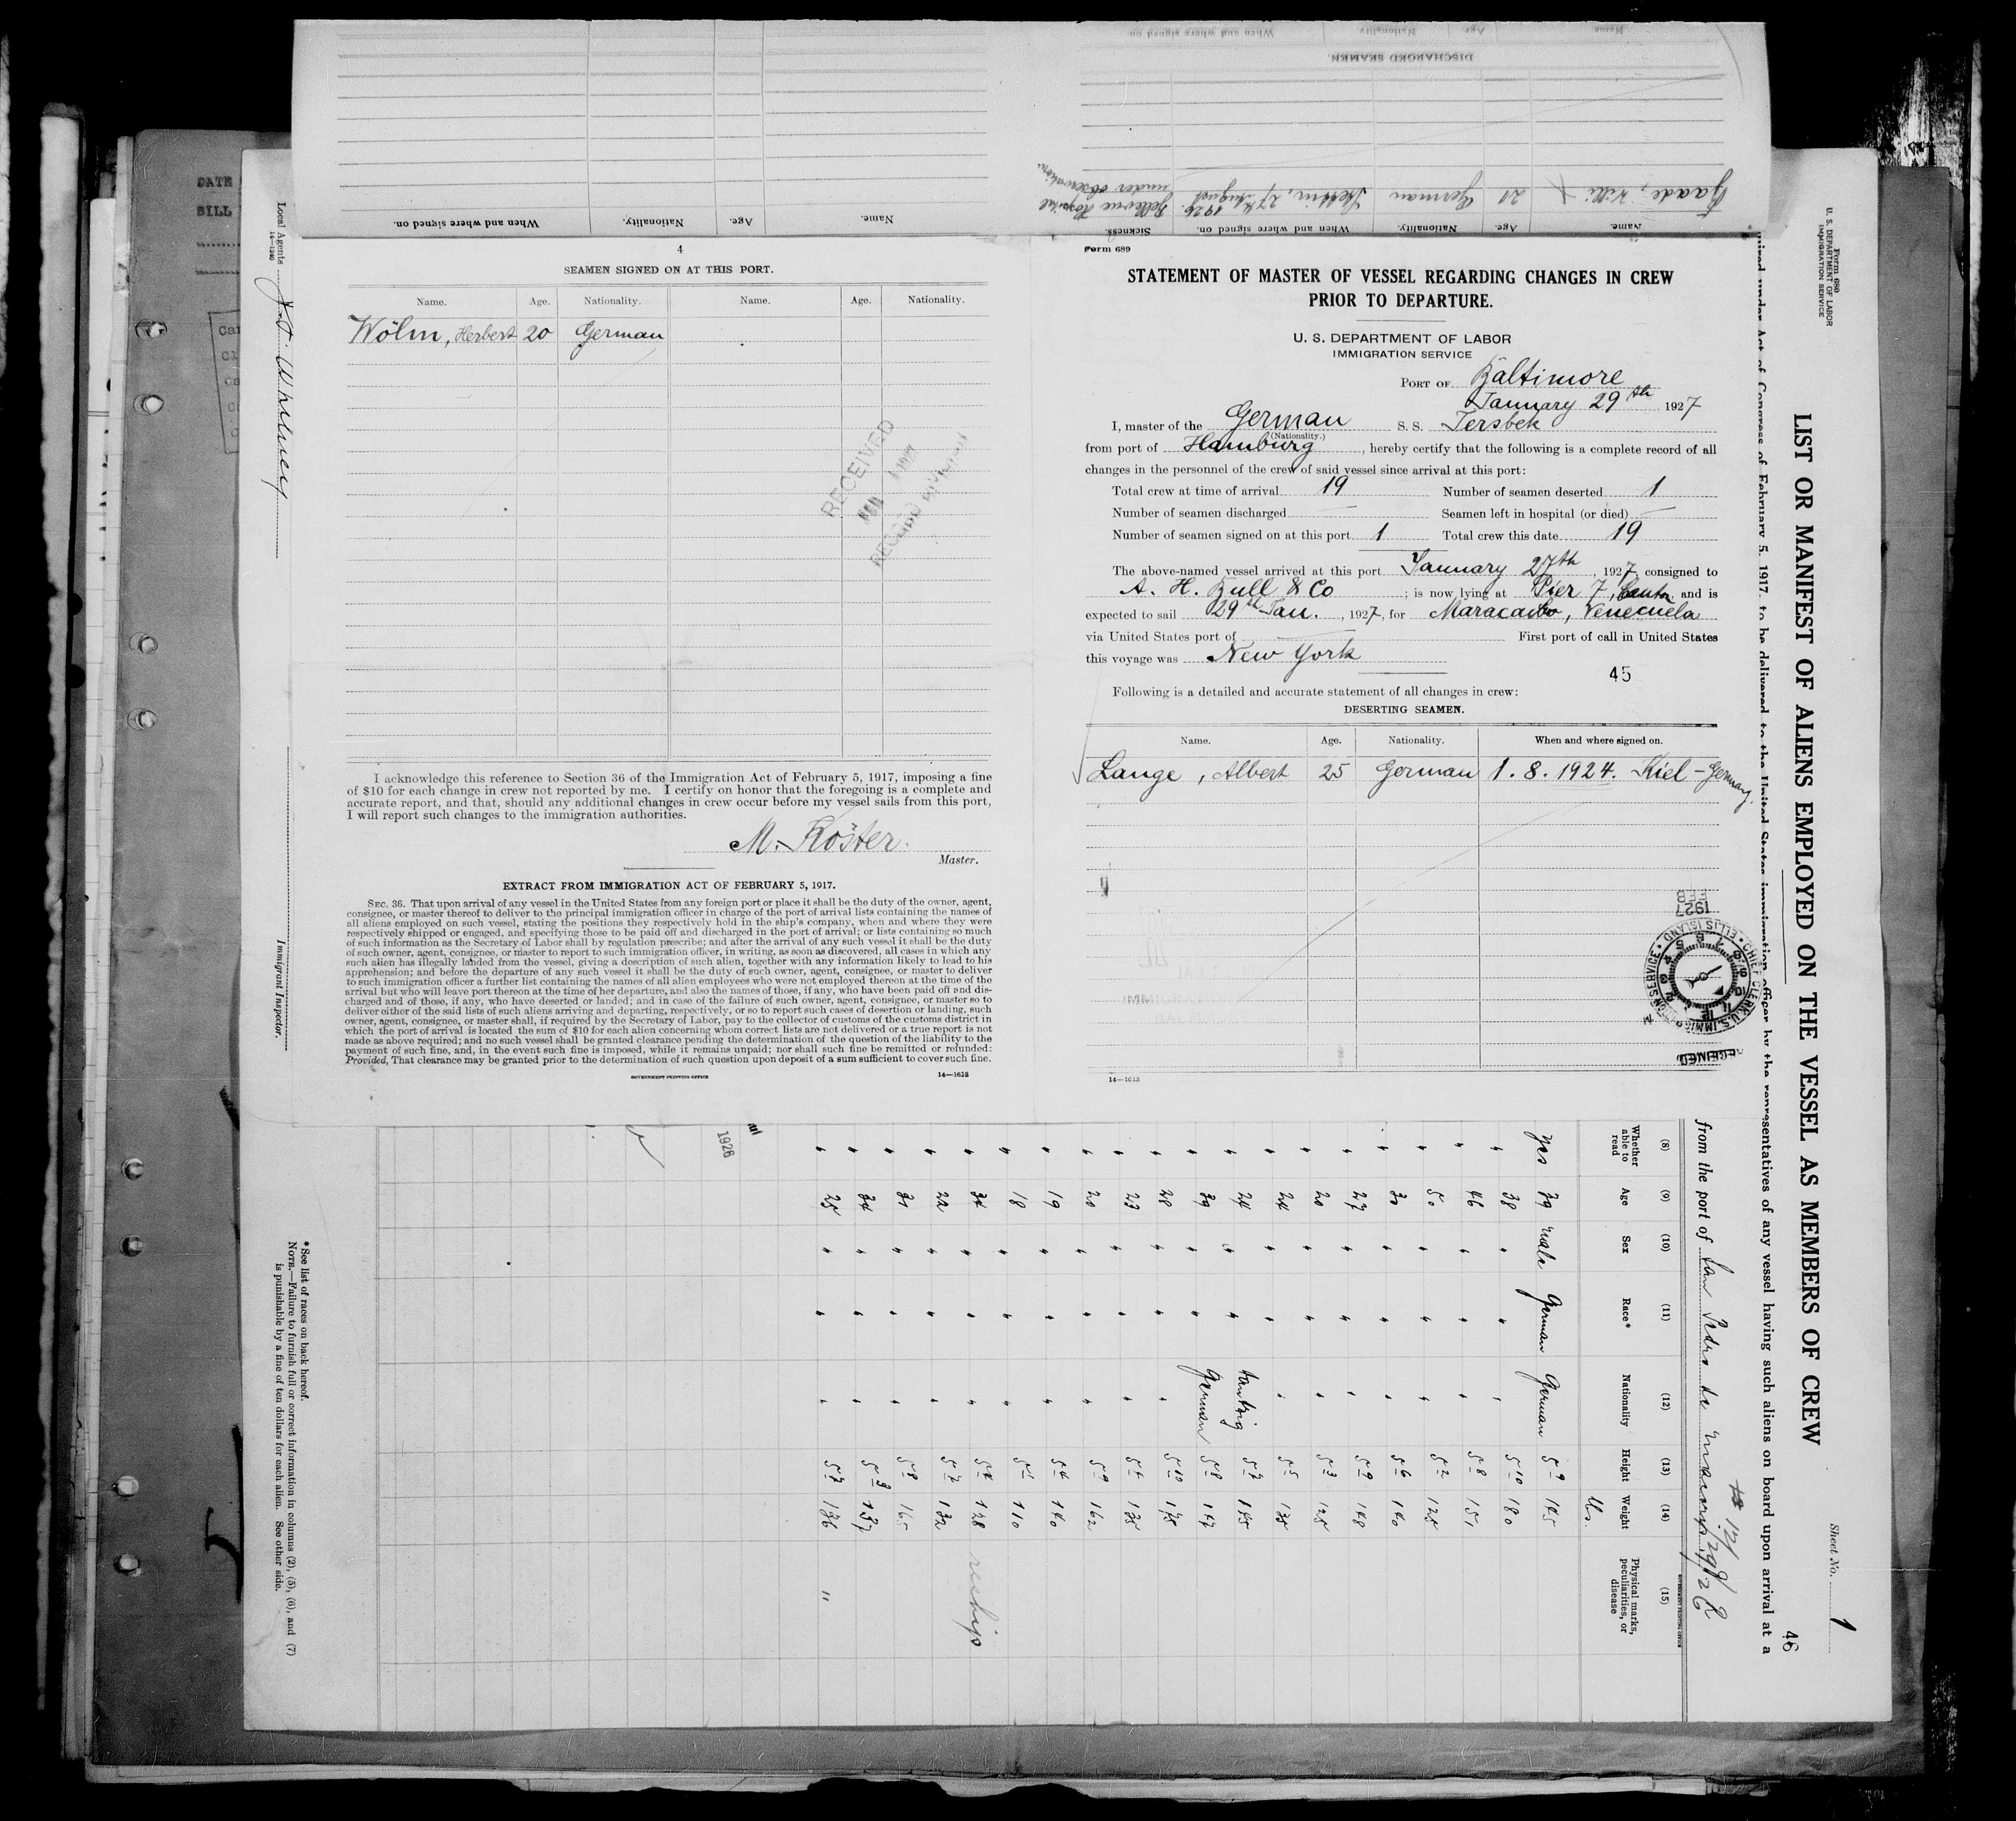 DISCHARGED SEAMEN.
Name. Age. Nationality. When and where signed on.
Name. Age. Nationality. When and where signed on. Sickness.
Gaade, Willi 21 German Stettin, 27th August 1926. Bellevue Hospital under observation.
DATE
BILL
4
SEAMEN SIGNED ON AT THIS PORT.
Name. Age. Nationality. Name. Age. Nationality.
Wölm, Herbert 20 German
RECEIVED
RECORD DIVISION
I acknowledge this reference to Section 36 of the Immigration Act of February 5, 1917, imposing a fine
of $10 for each change in crew not reported by me. I certify on honor that the foregoing is a complete and
accurate report, and that, should any additional changes in crew occur before my vessel sails from this port,
I will report such changes to the immigration authorities.
M. Köster.
Master.
EXTRACT FROM IMMIGRATION ACT OF FEBRUARY 5, 1917.
SEC. 36. That upon arrival of any vessel in the United States from any foreign port or place it shall be the duty of the owner, agent,
consignee, or master thereof to deliver to the principal immigration officer in charge of the port of arrival lists containing the names of
all aliens employed on such vessel, stating the positions they respectively hold in the ship's company, when and where they were
respectively shipped or engaged, and specifying those to be paid off and discharged in the port of arrival; or lists containing so much
of such information as the Secretary of Labor shall by regulation prescribe; and after the arrival of any such vessel it shall be the duty
of such owner, agent, consignee, or master to report to such immigration officer, in writing, as soon as discovered, all cases in which any
such alien has illegally landed from the vessel, giving a description of such alien, together with any information likely to lead to his
apprehension; and before the departure of any such vessel it shall be the duty of such owner, agent, consignee, or master to deliver
to such immigration officer a further list containing the names of all alien employees who were not employed thereon at the time of the
arrival but who will leave port thereon at the time of her departure, and also the names of those, if any, who have been paid off and dis-
charged and of those, if any, who have deserted or landed; and in case of the failure of such owner, agent, consignee, or master so to
deliver either of the said lists of such aliens arriving and departing, respectively, or so to report such cases of desertion or landing, such
owner, agent, consignee, or master shall, if required by the Secretary of Labor, pay to the collector of customs of the customs district in
which the port of arrival is located the sum of $10 for each alien concerning whom correct lists are not delivered or a true report is not
made as above required; and no such vessel shall be granted clearance pending the determination of the question of the liability to the
payment of such fine, and, in the event such fine is imposed, while it remains unpaid; nor shall such fine be remitted or refunded:
Provided, That clearance may be granted prior to the determination of such question upon deposit of a sum sufficient to cover such fine.
GOVERNMENT PRINTING OFFICE 14—1613
Form 689
STATEMENT OF MASTER OF VESSEL REGARDING CHANGES IN CREW
PRIOR TO DEPARTURE.
U. S. DEPARTMENT OF LABOR
IMMIGRATION SERVICE
PORT OF Baltimore
January 29th 1927
I, master of the German S. S. Jersbek
(Nationality.)
from port of Hamburg, hereby certify that the following is a complete record of all
changes in the personnel of the crew of said vessel since arrival at this port:
Total crew at time of arrival 19 Number of seamen deserted 1
Number of seamen discharged — Seamen left in hospital (or died) —
Number of seamen signed on at this port 1 Total crew this date 19
The above-named vessel arrived at this port January 27th, 1927, consigned to
A. H. Bull & Co; is now lying at Pier 7, Canton and is
expected to sail 29th Jan., 1927, for Maracaibo, Venecuela
via United States port of — First port of call in United States
this voyage was New York
45
Following is a detailed and accurate statement of all changes in crew:
DESERTING SEAMEN.
Name. Age. Nationality. When and where signed on.
Lange, Albert 25 German 1. 8. 1924. Kiel - Germany
1927 FEB
CHIEF CLERK, U.S. IMMIGRATION SERVICE • ELLIS ISLAND •
RECEIVED
14—1613
Form 680
U. S. DEPARTMENT OF LABOR
IMMIGRATION SERVICE
Sheet No. 1
46
LIST OR MANIFEST OF ALIENS EMPLOYED ON THE VESSEL AS MEMBERS OF CREW
required under Act of Congress of February 5, 1917, to be delivered to the United States immigration officer by the representatives of any vessel having such aliens on board upon arrival at a
12/29/26
from the port of San Pedro de Macoris
(8) (9) (10) (11) (12) (13) (14) (15)
Whether able to read Age Sex Race* Nationality Height Weight Physical marks, peculiarities, or disease
lbs.
yes 39 male German German 5-9 145
" 38 " " " 5-10 180
" 46 " " " 5-8 151
" 50 " " " 5-2 125
" 30 " " " 5-6 140
" 27 " " " 5-9 148
" 20 " " " 5-3 125
" 24 " " " 5-5 135
" 24 " " Dantzig 5-7 145
" 39 " " German 5-8 147
" 28 " " " 5-10 175
" 23 " " " 5-4 135
" 20 " " " 5-9 162
" 19 " " " 5-4 140
" 18 " " " 5-1 110
" 34 " " " 5-4 128 reship
" 22 " " " 5-7 132
" 31 " " " 5-8 165
" 34 " " " 5-9 137
" 25 " " " 5-7 136 "
1926
*See list of races on back hereof.
NOTE.—Failure to furnish full or correct information in columns (2), (5), (6), and (7)
is punishable by a fine of ten dollars for each alien. See other side.
Local Agents
14—1240
Immigrant Inspector.